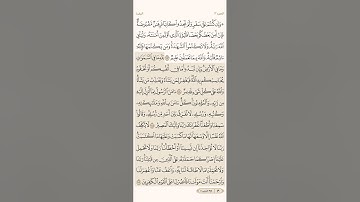 ۞ وَإِن كُنتُمْ عَلَىٰ سَفَرٍ وَلَمْ تَجِدُوا۟ كَاتِبًا فَرِهَـٰنٌ مَّقْبُوضَةٌ
فَإِنْ أَمِنَ بَعْضُكُم بَعْضًا فَلْيُؤَدِّ ٱلَّذِى ٱؤْتُمِنَ أَمَـٰنَتَهُۥ وَلْيَتَّقِ
ٱللَّهَ رَبَّهُۥ وَلَا تَكْتُمُوا۟ ٱلشَّهَـٰدَةَ وَمَن يَكْتُمْهَا فَإِنَّهُۥٓ
ءَاثِمٌ قَلْبُهُۥ وَٱللَّهُ بِمَا تَعْمَلُونَ عَلِيمٌ ٢٨٣ لِّلَّهِ مَا فِى ٱلسَّمَـٰوَٰتِ
وَمَا فِى ٱلْأَرْضِ وَإِن تُبْدُوا۟ مَا فِىٓ أَنفُسِكُمْ أَوْ تُخْفُوهُ
يُحَاسِبْكُم بِهِ ٱللَّهُ فَيَغْفِرُ لِمَن يَشَآءُ وَيُعَذِّبُ مَن يَشَآءُ
وَٱللَّهُ عَلَىٰ كُلِّ شَىْءٍ قَدِيرٌ ٢٨٤ ءَامَنَ ٱلرَّسُولُ بِمَآ أُنزِلَ إِلَيْهِ
مِن رَّبِّهِۦ وَٱلْمُؤْمِنُونَ كُلٌّ ءَامَنَ بِٱللَّهِ وَمَلَـٰٓئِكَتِهِۦ
وَكُتُبِهِۦ وَرُسُلِهِۦ لَا نُفَرِّقُ بَيْنَ أَحَدٍ مِّن رُّسُلِهِۦ وَقَالُوا۟
سَمِعْنَا وَأَطَعْنَا غُفْرَانَكَ رَبَّنَا وَإِلَيْكَ ٱلْمَصِيرُ ٢٨٥ لَا يُكَلِّفُ
ٱللَّهُ نَفْسًا إِلَّا وُسْعَهَا لَهَا مَا كَسَبَتْ وَعَلَيْهَا مَا ٱكْتَسَبَتْ
رَبَّنَا لَا تُؤَاخِذْنَآ إِن نَّسِينَآ أَوْ أَخْطَأْنَا رَبَّنَا وَلَا تَحْمِلْ
عَلَيْنَآ إِصْرًا كَمَا حَمَلْتَهُۥ عَلَى ٱلَّذِينَ مِن قَبْلِنَا رَبَّنَا
وَلَا تُحَمِّلْنَا مَا لَا طَاقَةَ لَنَا بِهِۦ وَٱعْفُ عَنَّا وَٱغْفِرْ لَنَا
وَٱرْحَمْنَآ أَنتَ مَوْلَىٰنَا فَٱنصُرْنَا عَلَى ٱلْقَوْمِ ٱلْكَـٰفِرِينَ ٢٨٦